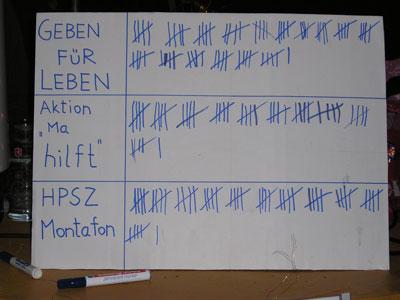 GEBEN
FÜR
LEBEN
Aktion
"Ma
hilft"
HPSZ
Montafon